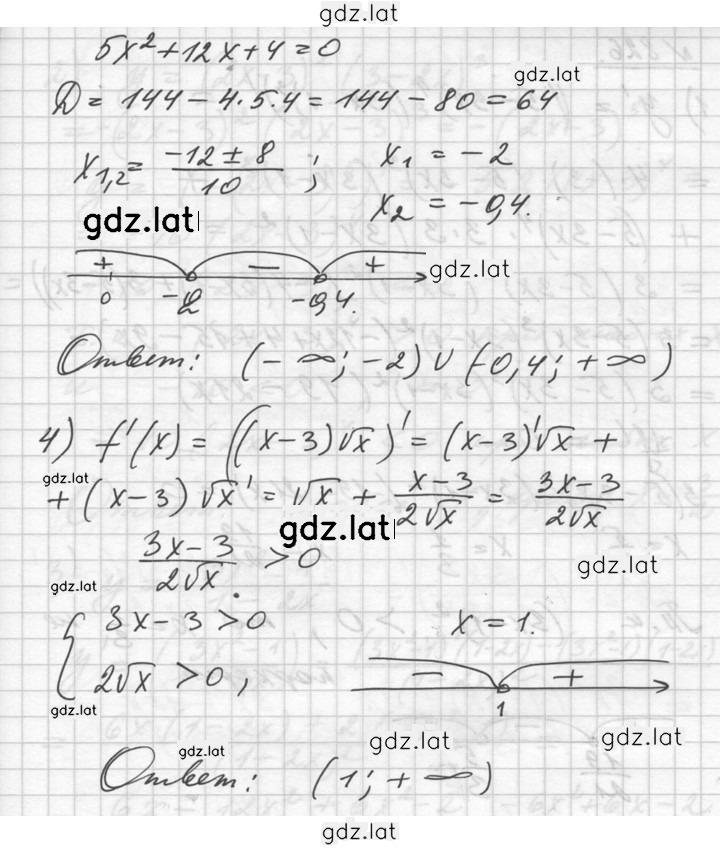 gdz.lat
5x² + 12x + 4 = 0
gdz.lat
D = 144 − 4·5·4 = 144 − 80 = 64
x₁,₂ = (−12 ± 8)/10 ; x₁ = −2
x₂ = −0,4.
gdz.lat
+ − + gdz.lat
0 −2 −0,4.
Ответ: (−∞; −2) ∪ (−0,4; +∞)
4) f'(x) = ((x−3)√x)' = (x−3)'√x +
gdz.lat
+ (x−3)√x' = √x + (x−3)/(2√x) = (3x−3)/(2√x)
gdz.lat
(3x−3)/(2√x) > 0
gdz.lat
gdz.lat
{ 3x−3 > 0 x = 1.
2√x > 0, − +
gdz.lat 1
gdz.lat gdz.lat gdz.lat
Ответ: (1; +∞)
gdz.lat